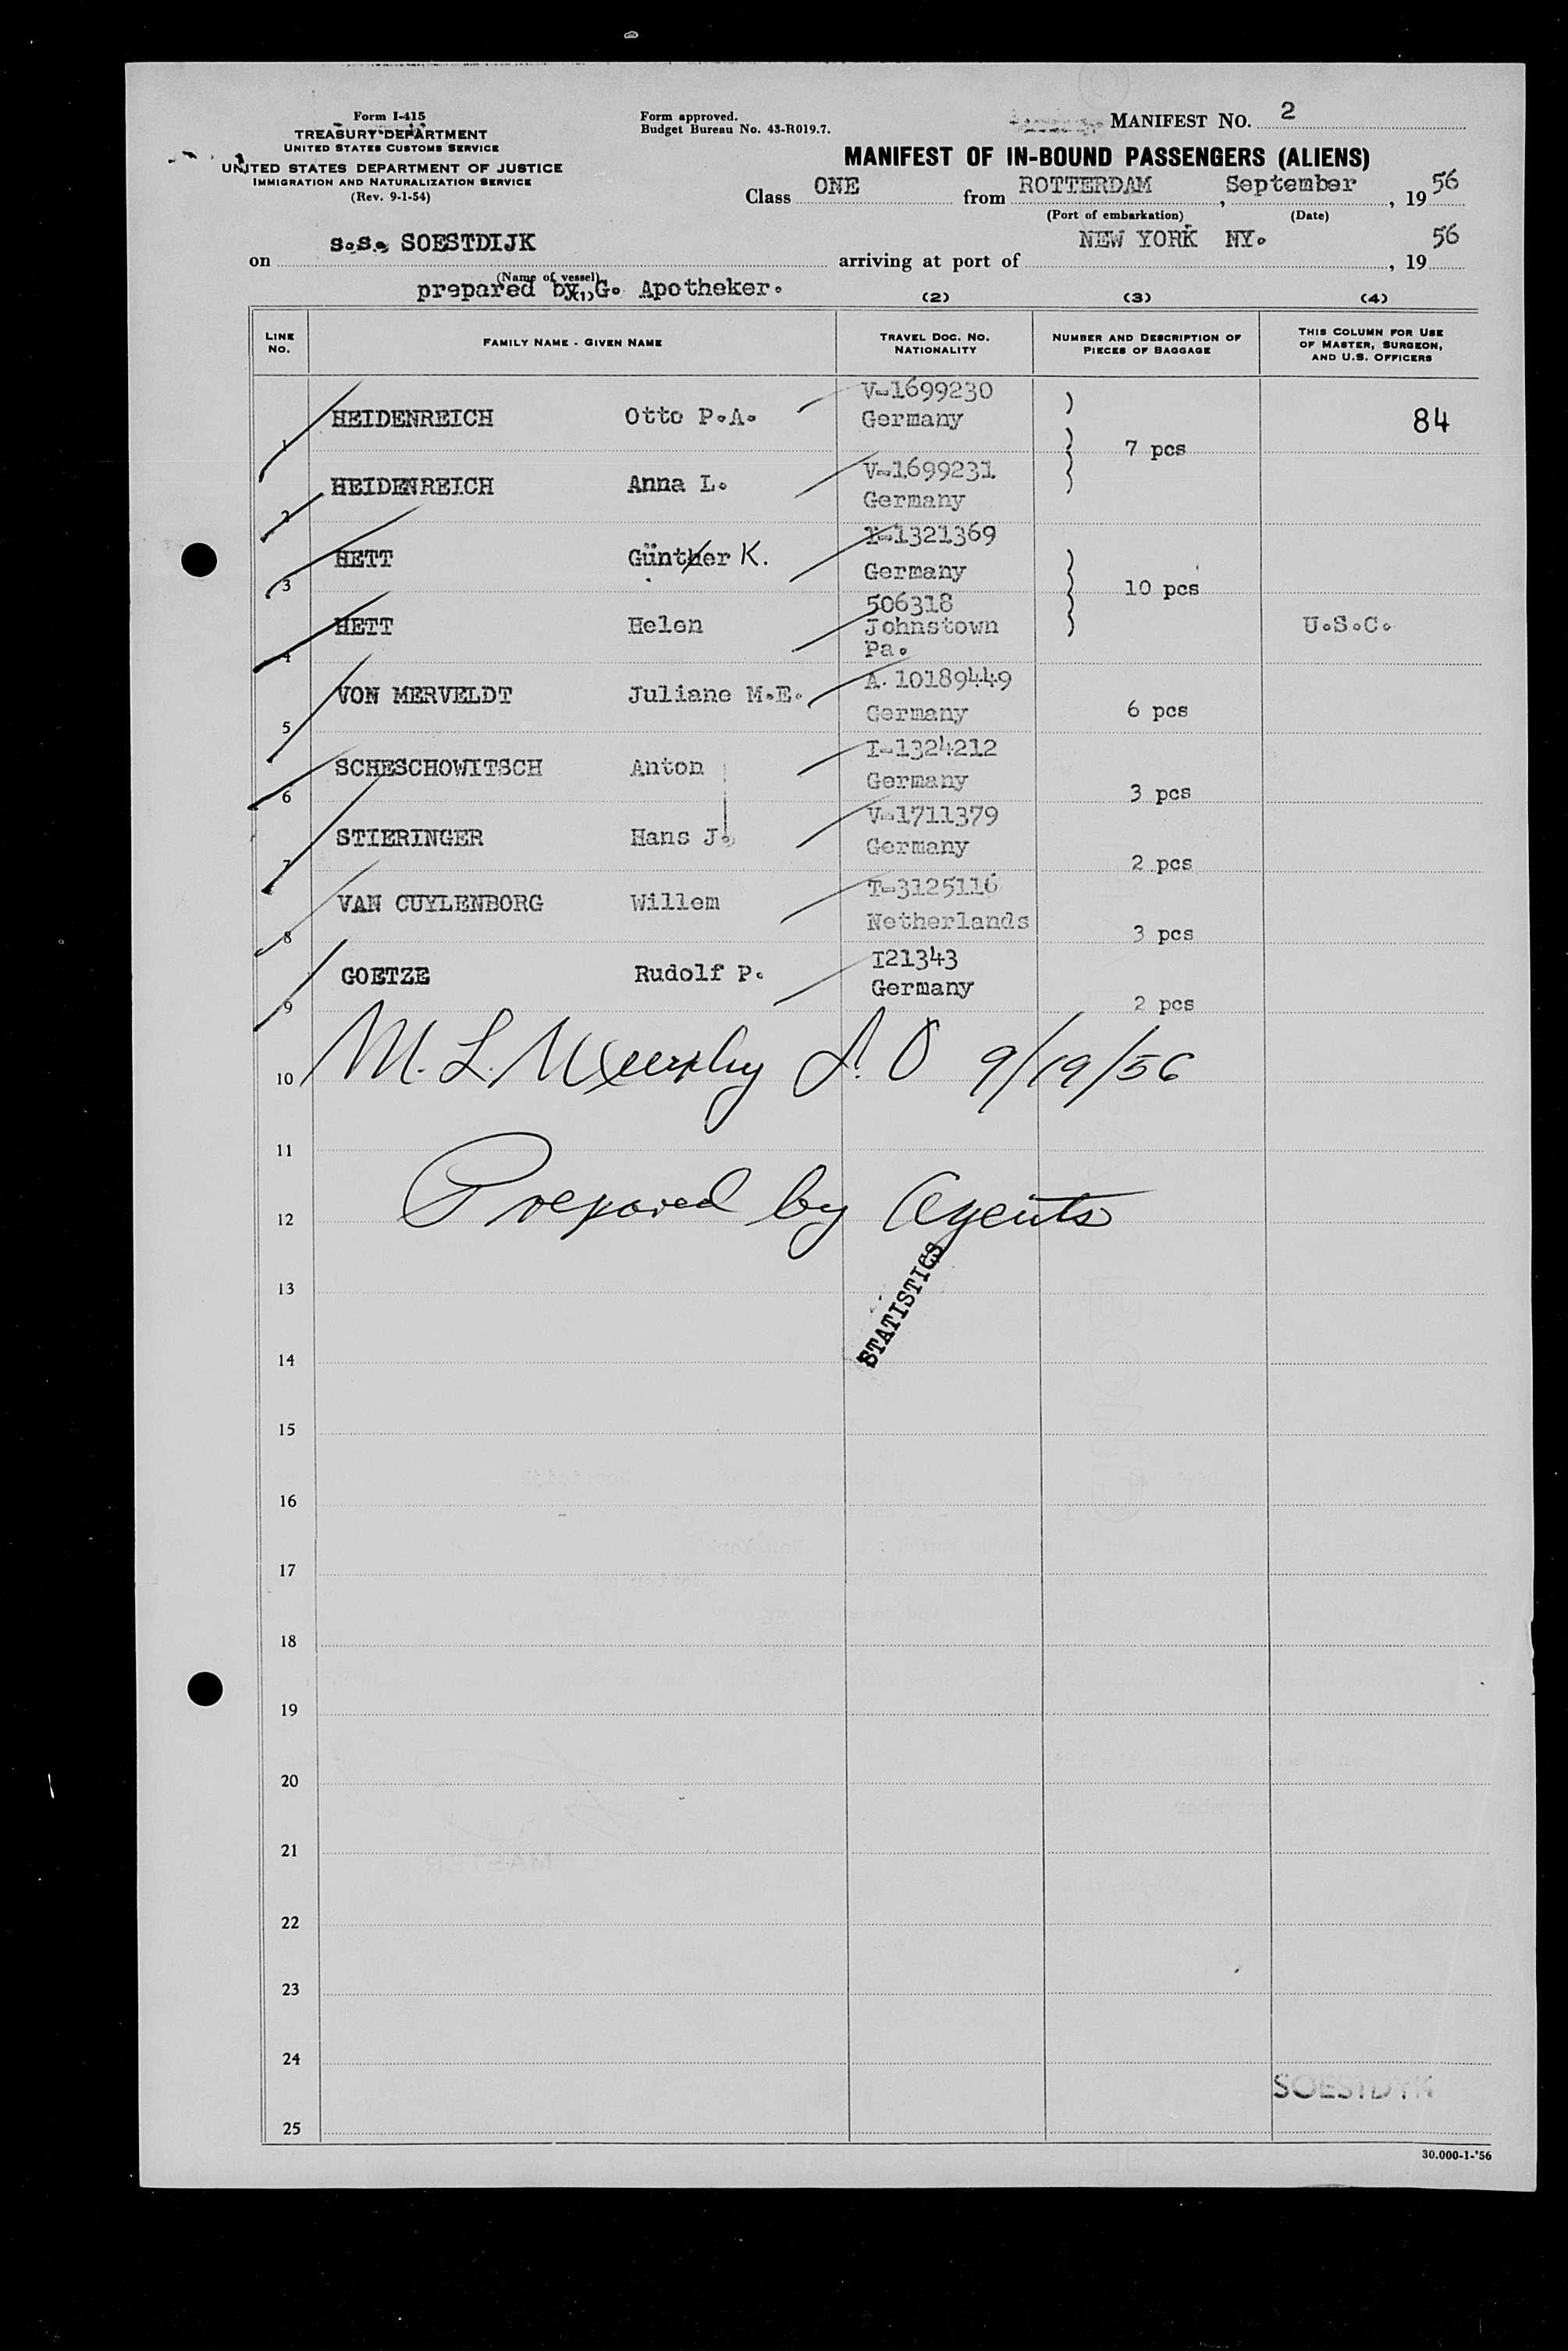 Form I-415
TREASURY DEPARTMENT
UNITED STATES CUSTOMS SERVICE
UNITED STATES DEPARTMENT OF JUSTICE
IMMIGRATION AND NATURALIZATION SERVICE
(Rev. 9-1-54)
Form approved.
Budget Bureau No. 43-R019.7.
MANIFEST NO. 2
MANIFEST OF IN-BOUND PASSENGERS (ALIENS)
Class ONE from ROTTERDAM, September, 19 56
(Port of embarkation) (Date)
on s.s. SOESTDIJK arriving at port of NEW YORK NY., 19 56
(Name of vessel)
prepared by G. Apotheker.
(1) (2) (3) (4)
LINE NO. FAMILY NAME - GIVEN NAME TRAVEL DOC. NO. NATIONALITY NUMBER AND DESCRIPTION OF PIECES OF BAGGAGE THIS COLUMN FOR USE OF MASTER, SURGEON, AND U.S. OFFICERS
V-1699230
1 HEIDENREICH Otto P.A. Germany 84
7 pcs
V-1699231
2 HEIDENREICH Anna L. Germany
1321369
3 HETT Günther K. Germany
10 pcs
506318
4 HETT Helen Johnstown U.S.C.
Pa.
A. 10189449
5 VON MERVELDT Juliane M.E. Germany 6 pcs
I-1324212
6 SCHESCHOWITSCH Anton Germany 3 pcs
V-1711379
7 STIERINGER Hans J. Germany 2 pcs
T-3125116
8 VAN CUYLENBORG Willem Netherlands 3 pcs
I21343
9 GOETZE Rudolf P. Germany 2 pcs
10 M. L. Murphy 9/19/56
11
12 Prepared by Agents
13
STATISTICS
14
15
16
17
18
19
20
21
22
23
24
SOESTDYK
25
30.000-1-'56